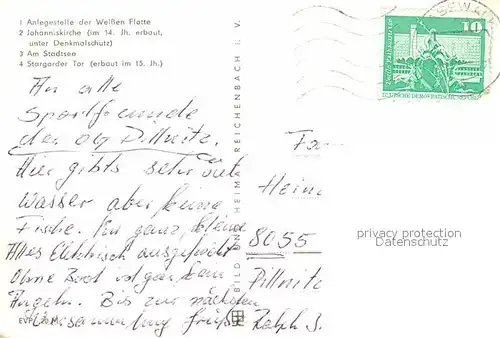 1 Anlegestelle der Weißen Flotte
2 Johanniskirche (im 14. Jh. erbaut,
unter Denkmalschutz)
3 Am Stadtsee
4 Stargarder Tor (erbaut im 15. Jh.)
An alle
Sportfreunde
der OG Pillnitz.
Hier gibts sehr viel
Wasser aber keine
Fische.
Altes Elektrisch ausgefischt
Ohne Boot ist gar kein
Angeln. Bis zur nächsten
Versammlung grüßt Ralph S.
EVP
BILD UND HEIMAT REICHENBACH I. V.
10
DEUTSCHE DEMOKRATISCHE REPUBLIK
Fam
Hein
8055
Pillnitz
privacy protection
Datenschutz